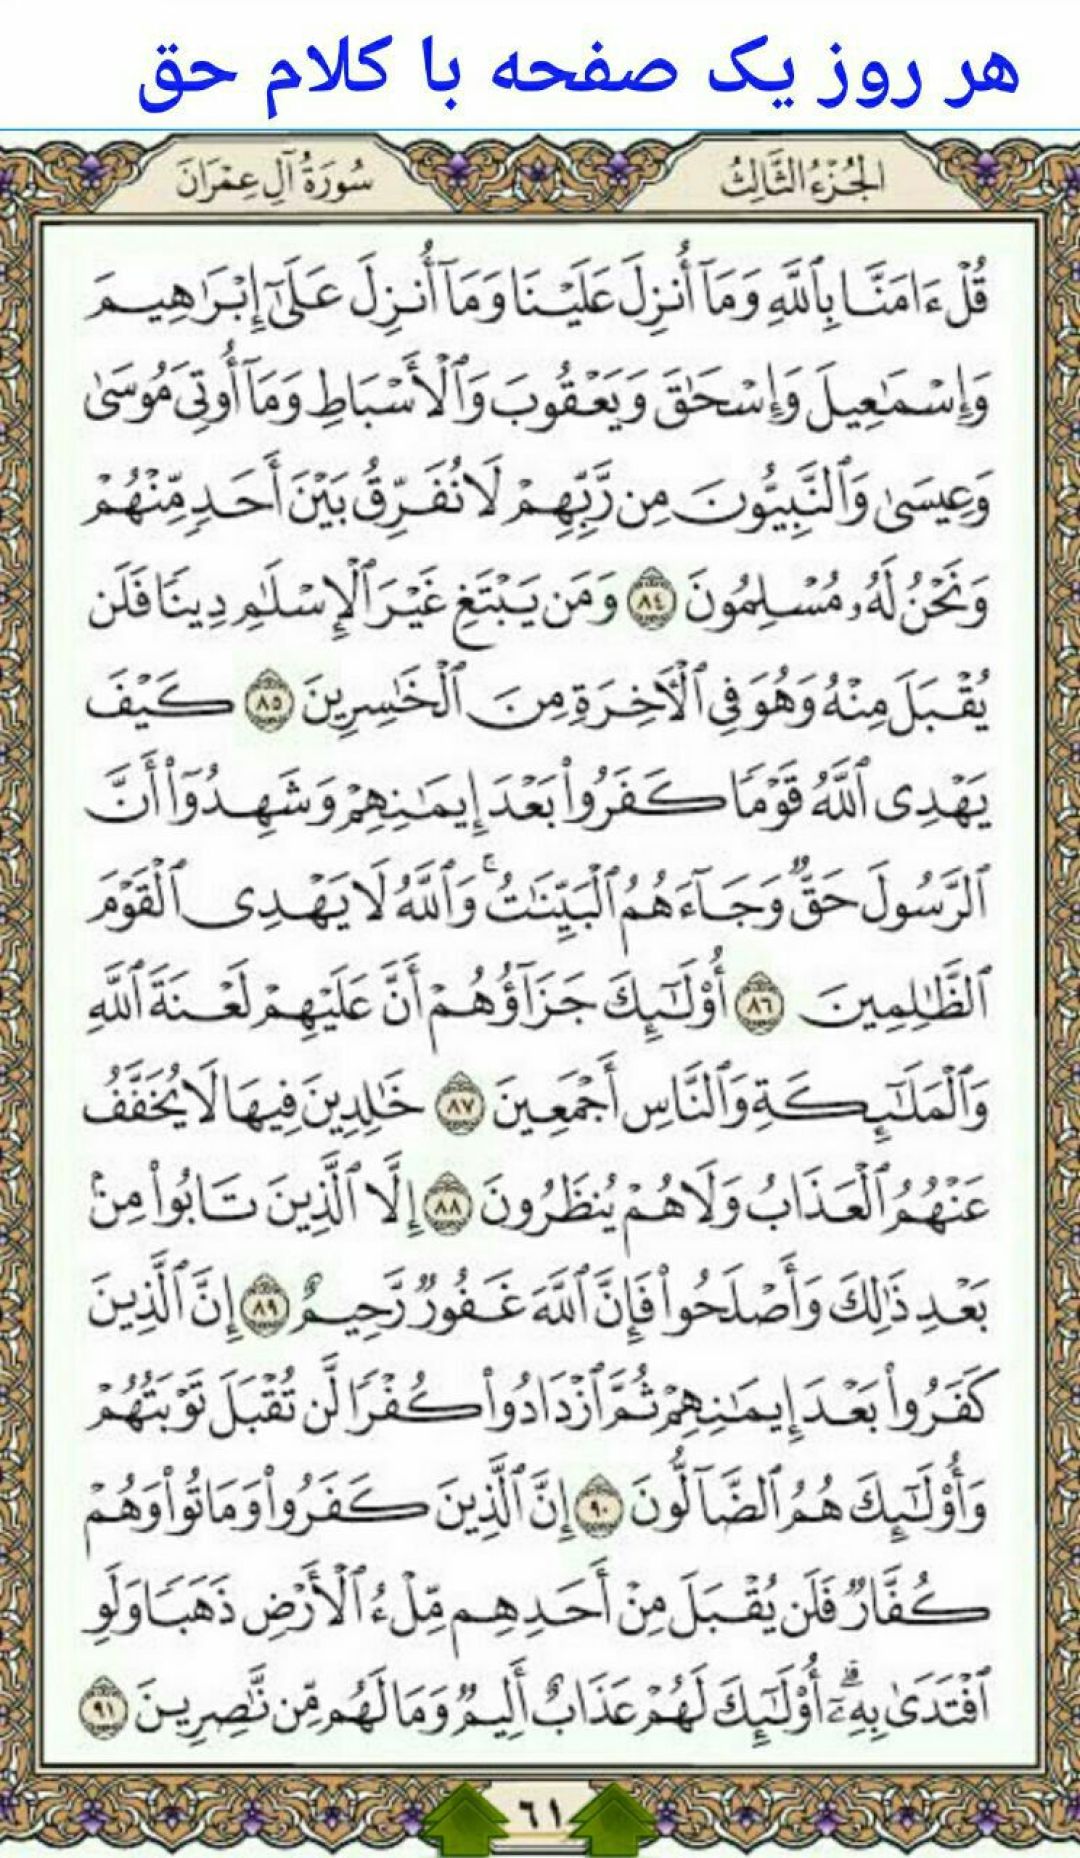 هر روز یک صفحه با کلام حق
الجُزْءُ الثَّالِثُ
سُورَةُ آلِ عِمْرَانَ
قُلْ ءَامَنَّا بِٱللَّهِ وَمَآ أُنزِلَ عَلَيْنَا وَمَآ أُنزِلَ عَلَىٰٓ إِبْرَٰهِيمَ
وَإِسْمَٰعِيلَ وَإِسْحَٰقَ وَيَعْقُوبَ وَٱلْأَسْبَاطِ وَمَآ أُوتِىَ مُوسَىٰ
وَعِيسَىٰ وَٱلنَّبِيُّونَ مِن رَّبِّهِمْ لَا نُفَرِّقُ بَيْنَ أَحَدٍ مِّنْهُمْ
وَنَحْنُ لَهُۥ مُسْلِمُونَ ٨٤ وَمَن يَبْتَغِ غَيْرَ ٱلْإِسْلَٰمِ دِينًا فَلَن
يُقْبَلَ مِنْهُ وَهُوَ فِى ٱلْـَٔاخِرَةِ مِنَ ٱلْخَٰسِرِينَ ٨٥ كَيْفَ
يَهْدِى ٱللَّهُ قَوْمًا كَفَرُوا۟ بَعْدَ إِيمَٰنِهِمْ وَشَهِدُوٓا۟ أَنَّ
ٱلرَّسُولَ حَقٌّ وَجَآءَهُمُ ٱلْبَيِّنَٰتُ ۚ وَٱللَّهُ لَا يَهْدِى ٱلْقَوْمَ
ٱلظَّٰلِمِينَ ٨٦ أُو۟لَٰٓئِكَ جَزَآؤُهُمْ أَنَّ عَلَيْهِمْ لَعْنَةَ ٱللَّهِ
وَٱلْمَلَٰٓئِكَةِ وَٱلنَّاسِ أَجْمَعِينَ ٨٧ خَٰلِدِينَ فِيهَا لَا يُخَفَّفُ
عَنْهُمُ ٱلْعَذَابُ وَلَا هُمْ يُنظَرُونَ ٨٨ إِلَّا ٱلَّذِينَ تَابُوا۟ مِنۢ
بَعْدِ ذَٰلِكَ وَأَصْلَحُوا۟ فَإِنَّ ٱللَّهَ غَفُورٌ رَّحِيمٌ ٨٩ إِنَّ ٱلَّذِينَ
كَفَرُوا۟ بَعْدَ إِيمَٰنِهِمْ ثُمَّ ٱزْدَادُوا۟ كُفْرًا لَّن تُقْبَلَ تَوْبَتُهُمْ
وَأُو۟لَٰٓئِكَ هُمُ ٱلضَّآلُّونَ ٩٠ إِنَّ ٱلَّذِينَ كَفَرُوا۟ وَمَاتُوا۟ وَهُمْ
كُفَّارٌ فَلَن يُقْبَلَ مِنْ أَحَدِهِم مِّلْءُ ٱلْأَرْضِ ذَهَبًا وَلَوِ
ٱفْتَدَىٰ بِهِۦٓ ۗ أُو۟لَٰٓئِكَ لَهُمْ عَذَابٌ أَلِيمٌ وَمَا لَهُم مِّن نَّٰصِرِينَ ٩١
٦١